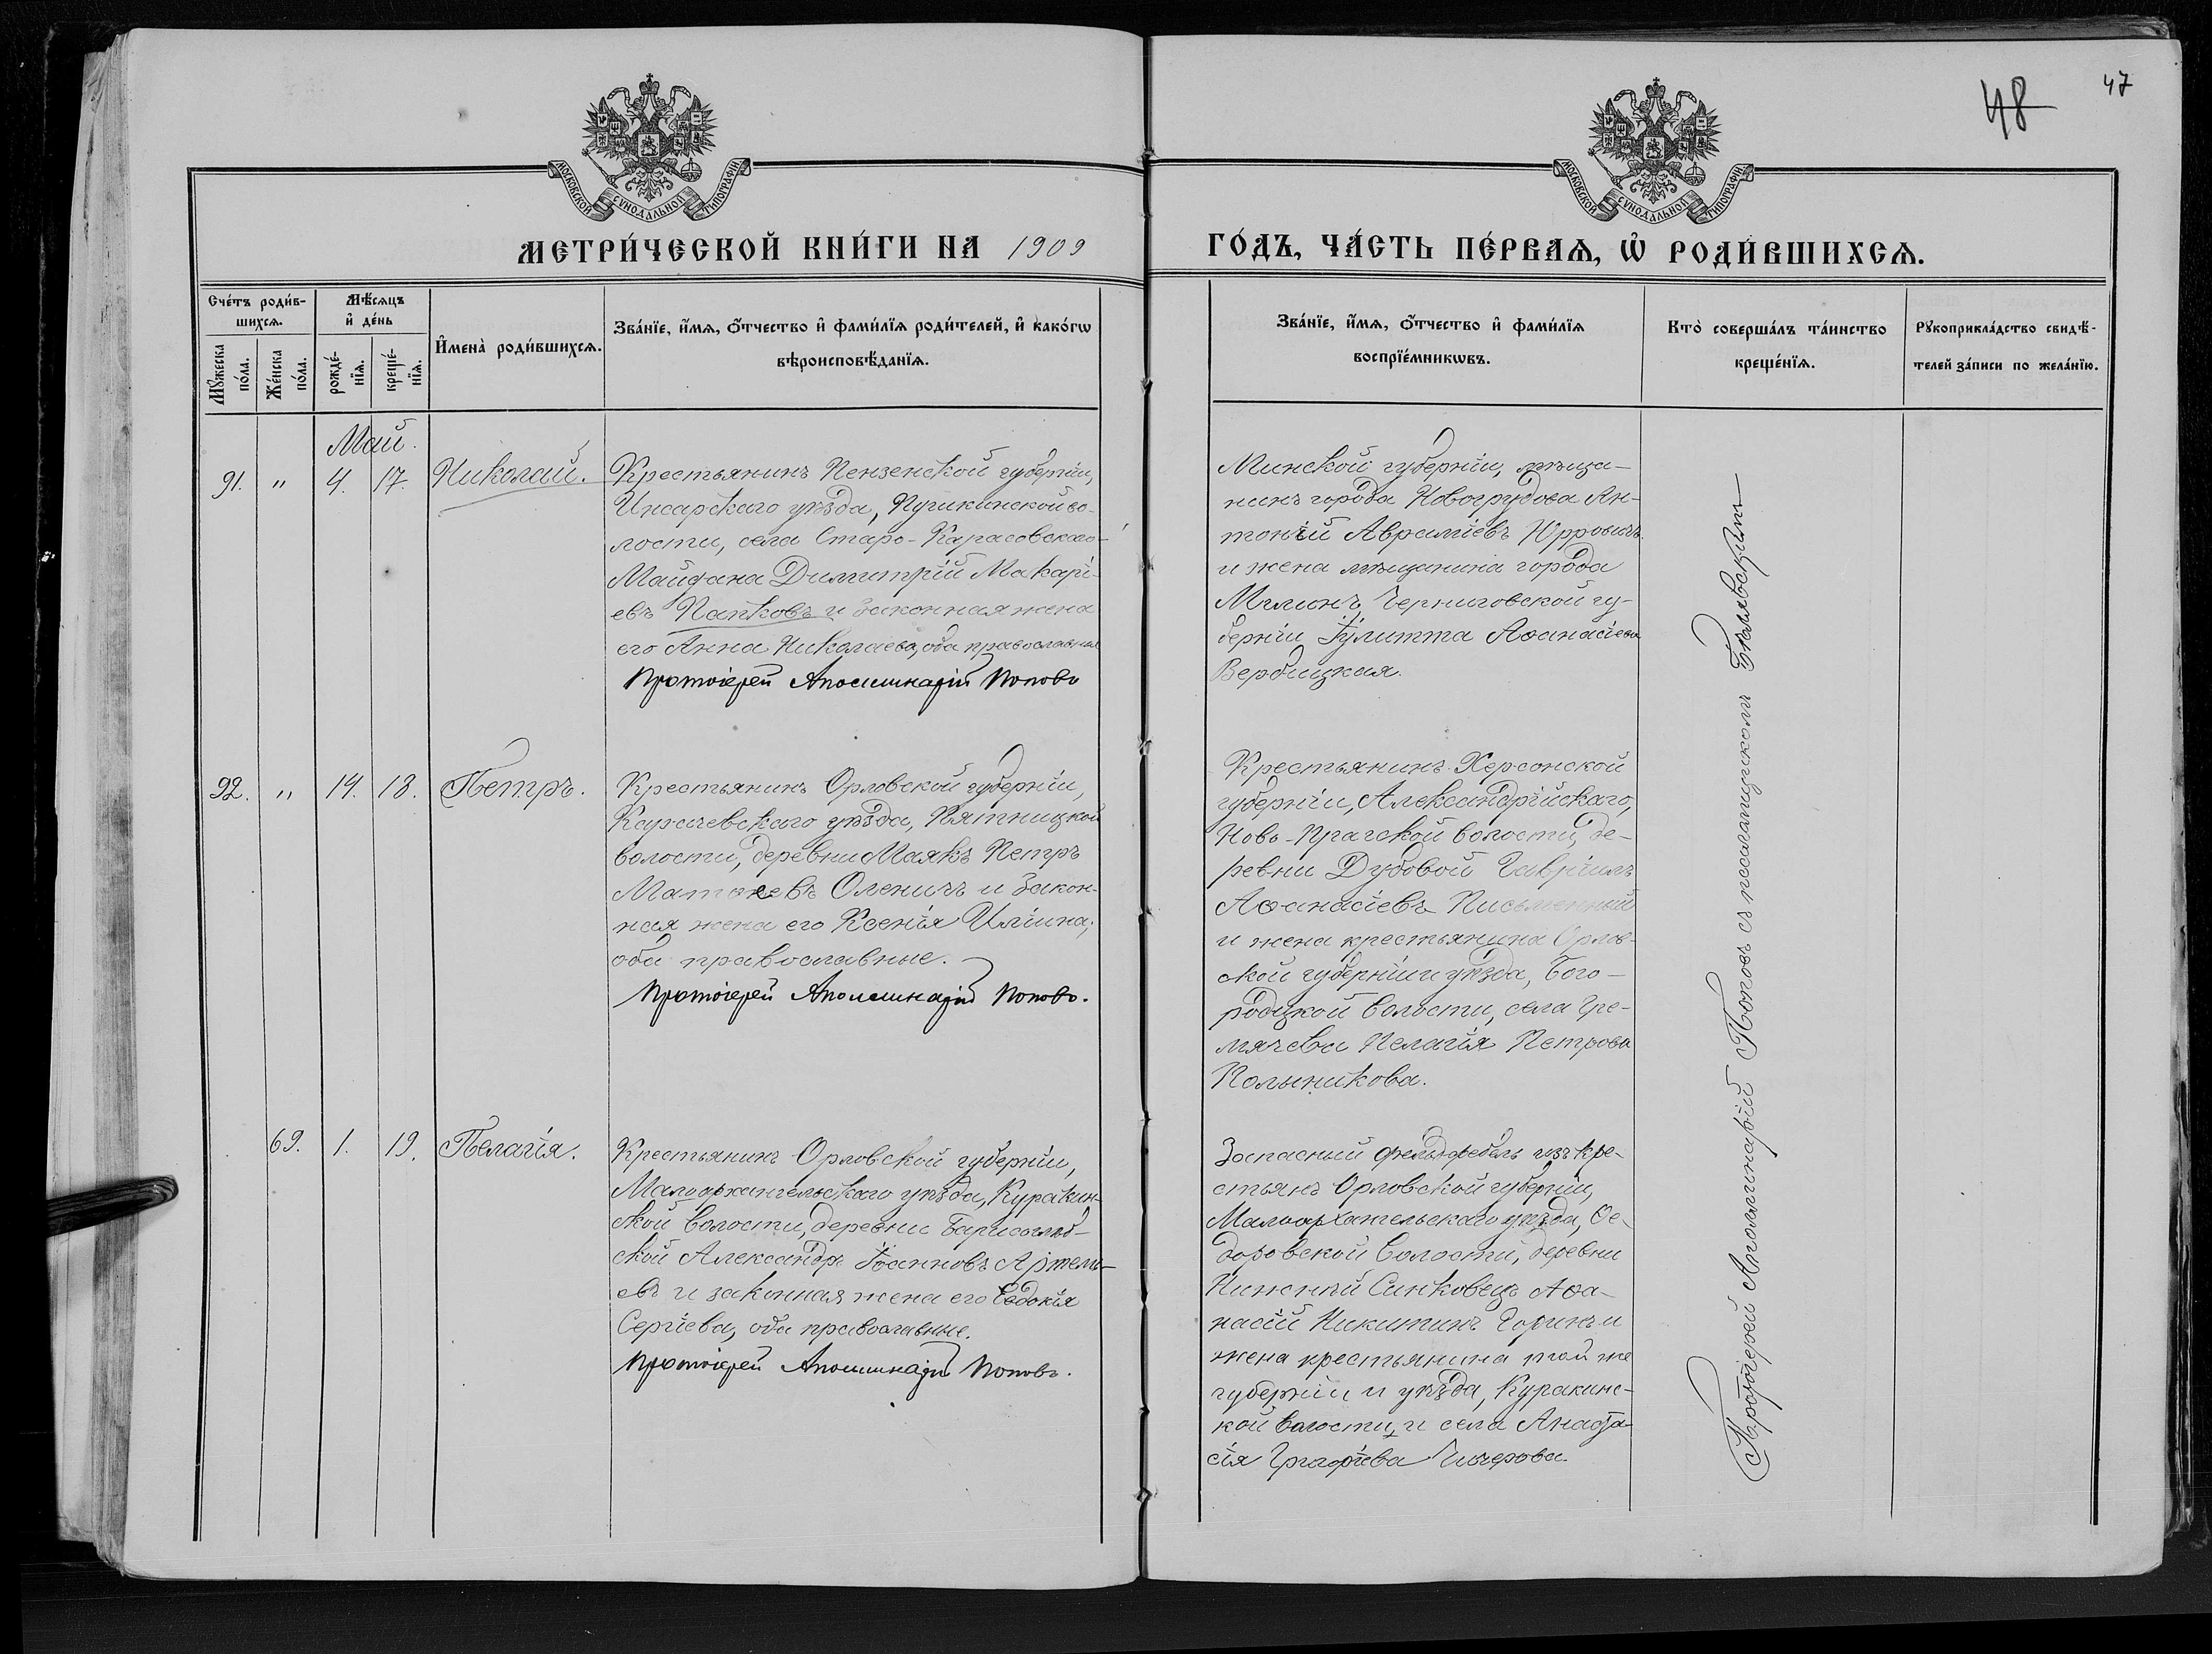 48
47
МОСКОВСКОЙ СѴНОДАЛЬНОЙ ТИПОГРАФІИ
МОСКОВСКОЙ СѴНОДАЛЬНОЙ ТИПОГРАФІИ
МЕТРИ́ЧЕСКОЙ КНИ́ГИ НА 1909
ГО́ДЪ, ЧА́СТЬ ПЕ́РВАѦ, Ѽ РОДИ́ВШИХСѦ.
Сче́тъ роди́в-
шихсѧ.
Мꙋжеска
по́ла.
Же́нска
по́ла.
Мѣ́сѧцъ
и҆ де́нь
рожде́-
нїѧ.
креще́-
нїѧ.
И҆мена̀ роди́вшихсѧ.
Зва́нїе, и҆́мѧ, ѻ҆́тчество и҆ фами́лїѧ роди́телей, и҆ како́гѡ
вѣроисповѣ́данїѧ.
Зва́нїе, и҆́мѧ, ѻ҆́тчество и҆ фами́лїѧ
воспрїе́мникѡвъ.
Кто̀ соверша́лъ та́инство
креще́нїѧ.
Рꙋкоприкла́дство свидѣ́-
телей за́писи по жела́нїю.
Май.
91. " 4. 17. Николай.
Крестьянинъ Пензенской губерніи,
Инсарскаго уѣзда, Пушкинской во-
лости, села Старо-Карасовскаго-
Майдана Димитрій Макарі-
евъ Папковъ и законная жена
его Анна Николаева, оба православные
Протоіерей Аполлинарій Поповъ
Минской губерніи, мѣща-
нинъ города Новогрудова Ан-
тоній Авраміевъ Юрровичъ
и жена мѣщанина города
Мглинъ, Черниговской гу-
берніи Іулитта Аѳанасіева
Вербицкая.
92. " 14. 18. Петръ.
Крестьянинъ Орловской губерніи,
Карачевскаго уѣзда, Пятницкой
волости, деревни Маякъ Петръ
Матѳеевъ Оленичъ и закон-
ная жена его Ксенія Иліина;
оба православные.
Протоіерей Аполлинарій Поповъ.
Крестьянинъ Херсонской
губерніи, Александрійскаго,
Ново-Прагской волости, де-
ревни Дубовой Гавріилъ
Аѳанасіевъ Письменный
и жена крестьянина Орлов-
ской губерніи и уѣзда, Бого-
родицкой волости, села Гре-
мячева Пелагія Петрова
Полынкова.
69. 1. 19. Пелагія.
Крестьянинъ Орловской губерніи,
Малоархангельскаго уѣзда, Куракин-
ской волости, деревни Борисоглѣб-
ской Александръ Іоанновъ Артемь-
евъ и законная жена его Евдокія
Сергіева, оба православные.
Протоіерей Аполлинарій Поповъ.
Запасный фельдфебель изъ кре-
стьянъ Орловской губерніи,
Малоархангельскаго уѣзда, Ѳе-
доровской волости, деревни
Нижній Синковецъ Аѳа-
насій Никитинъ Горинъ и
жена крестьянина той же
губерніи и уѣзда, Куракинс-
кой волости, и села Анаста-
сія Григоріева
Протоіерей Аполлинарій Поповъ съ псаломщикомъ Бѣлявскимъ